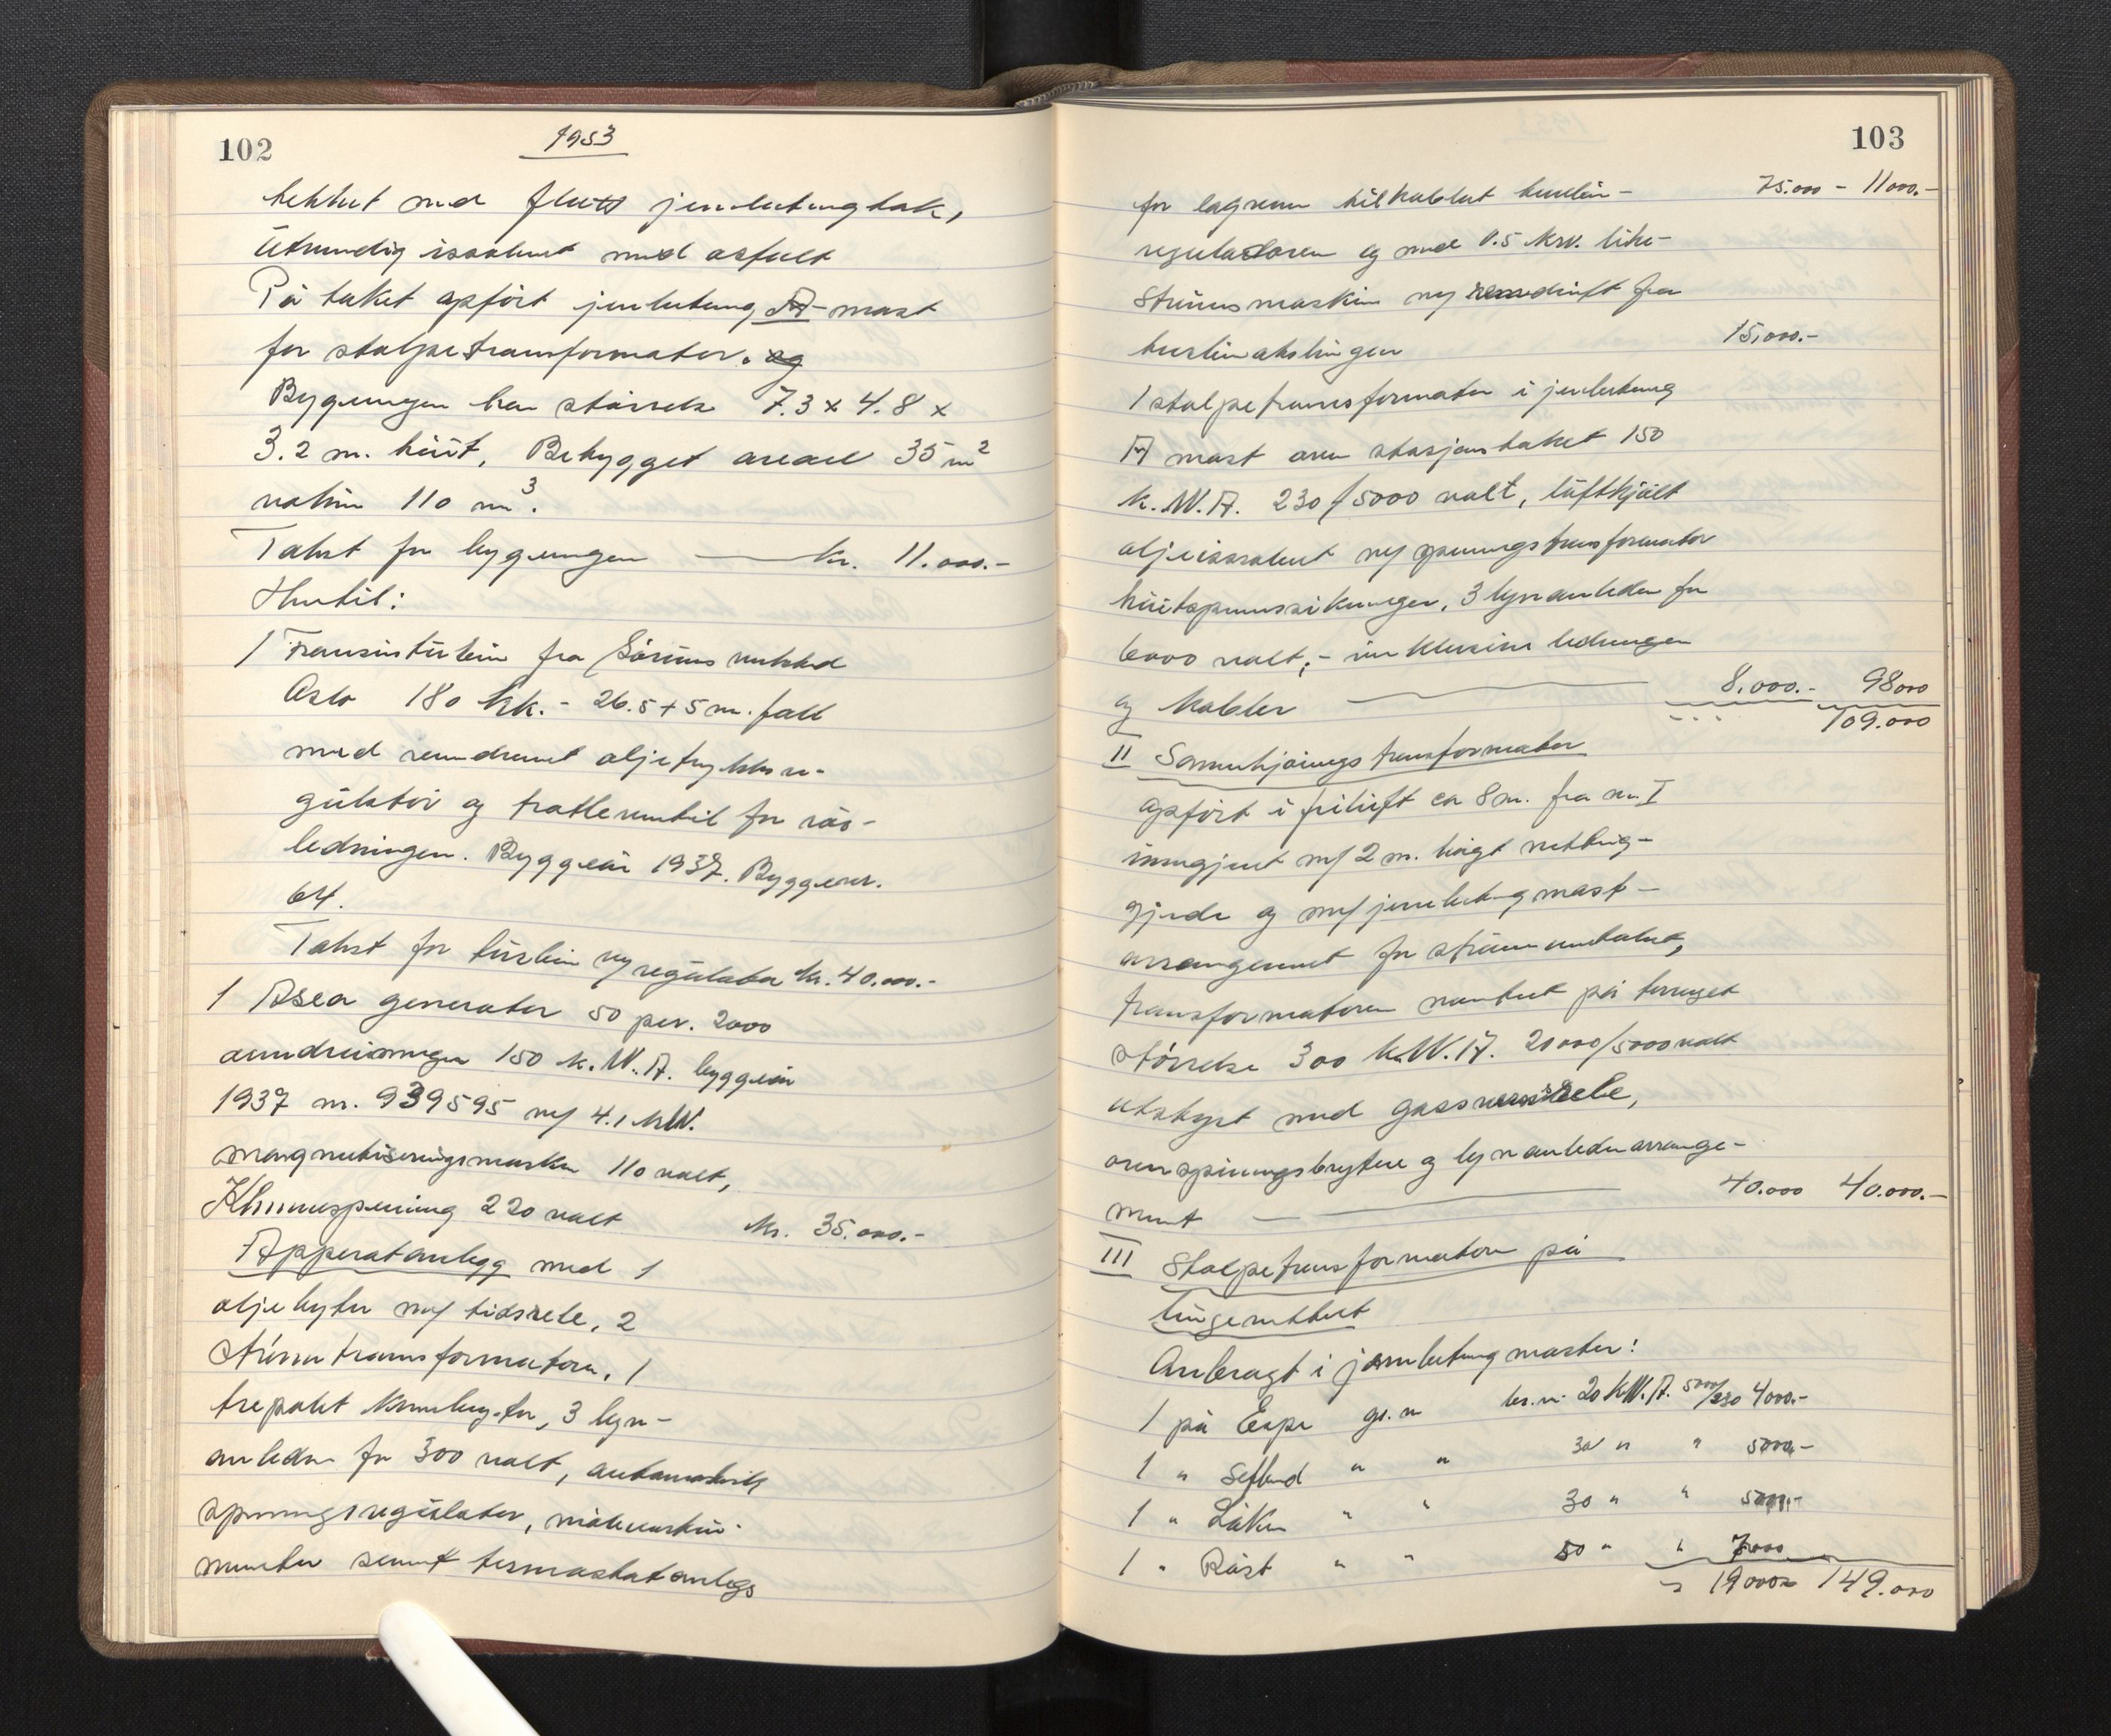 102
1953
tekket med flatt jernbetongtak,
utvendig issolert med asfalt
På taket opført jernbetong A-mast
for stolpetransformator. og
Bygningen har størrelse 7.3 x 4.8 x
3.2 m. höit, Bebygget areal 35 m²
volum 110 m³.
Takst for bygningen — kr. 11.000.-
Hertil:
1 Fransisturbin fra Sørums verksted
Oslo 180 hk. - 26.5 + 5 m. fall
med remdrevet oljetrykksre-
gulator og trotleventil for rör-
ledningen. Byggeår 1937. Byggenr.
64.
Takst for turbin m/ regulator kr. 40.000.-
1 Asea generator 50 per. 1000
omdreininger 150 k.W.A. byggeår
1937 nr. 939595 m/ 4.1 kW.
magnetiseringsmaskin 110 volt,
Klemmspenning 220 volt kr. 35.000.-
Apparatanlegg med 1
oljebryter m/ tidsrele, 2
strömtransformatorer, 1
trepolet knivbryter, 3 lyn-
avledere for 300 volt, automatisk
spenningsregulator, måleinstru-
menter samt termostatanlegg
103
for lagrene tilkoblet turbin- 75.000 - 11000.-
regulatoren og med 0.5 kw. like-
strömsmaskin m/ remdrift fra
turbinakslingen 15,000.-
1 stolpetransformator i jernbetong
A mast over stasjonstaket 150
k.W.A. 230/5000 volt, luftkjölt
oljeissolert m/ spenningstransformator
höitspennssikringer, 3 lynavledere for
6000 volt, - inklusive ledninger
og kabler — 8.000.- 98000
109.000
II Samkjöringstransformator
opfört i friluft ca 8 m. fra nr. I
inngjerdet m/ 2 m. högt netting-
gjerde og m/ jernbetongmast-
arrangement for ströminntaket,
transformatoren montert på terrenget
störrelse 300 k.W.A. 20000/5000 volt
utstyrt med gassrele,
overspenningsbrytere og lynavlederarrange-
ment — 40.000 40.000.-
III Stolpetransformatorer på
linjenettet
Anbragt i jernbetongmaster:
1 på Espe gr.nr br.nr 20 KW.A. 5000/230 4000.-
1 " Sefland " " 30 " " 5000.-
1 " Låkin " " 30 " " 5000.-
1 " Råst " " 50 " " 7000
19000 149.000